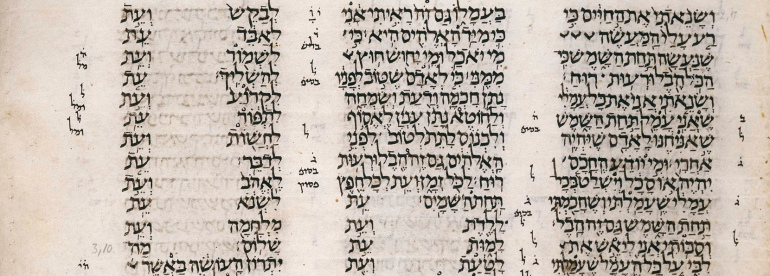 ושנאתי את החיים כי
רע עלי המעשה
שנעשה תחת השמש כי
הכל הבל ורעות רוח
ושנאתי אני את כל עמלי
שאני עמל תחת השמש
שאניחנו לאדם שיהיה
אחרי ומי יודע החכם
יהיה או סכל וישלט בכל
עמלי שעמלתי ושחכמתי
תחת השמש גם זה הבל
וסבותי אני ליאש את
לבי על כל העמל
בעמלו גם זה ראיתי אני
כי מיד האלהים היא כי
מי יאכל ומי יחוש חוץ
ממני כי לאדם שטוב לפניו
נתן חכמה ודעת ושמחה
ולחוטא נתן ענין לאסוף
ולכנוס לתת לטוב לפני
האלהים גם זה הבל ורעות
רוח לכל זמן ועת לכל חפץ
תחת השמים עת
ללדת ועת
למות עת
לטעת ועת
לבקש ועת
לאבד עת
לשמור ועת
להשליך עת
לקרוע ועת
לתפור עת
לחשות ועת
לדבר עת
לאהב ועת
לשנא עת
מלחמה ועת
שלום מה
יתרון העושה באשר
3,10